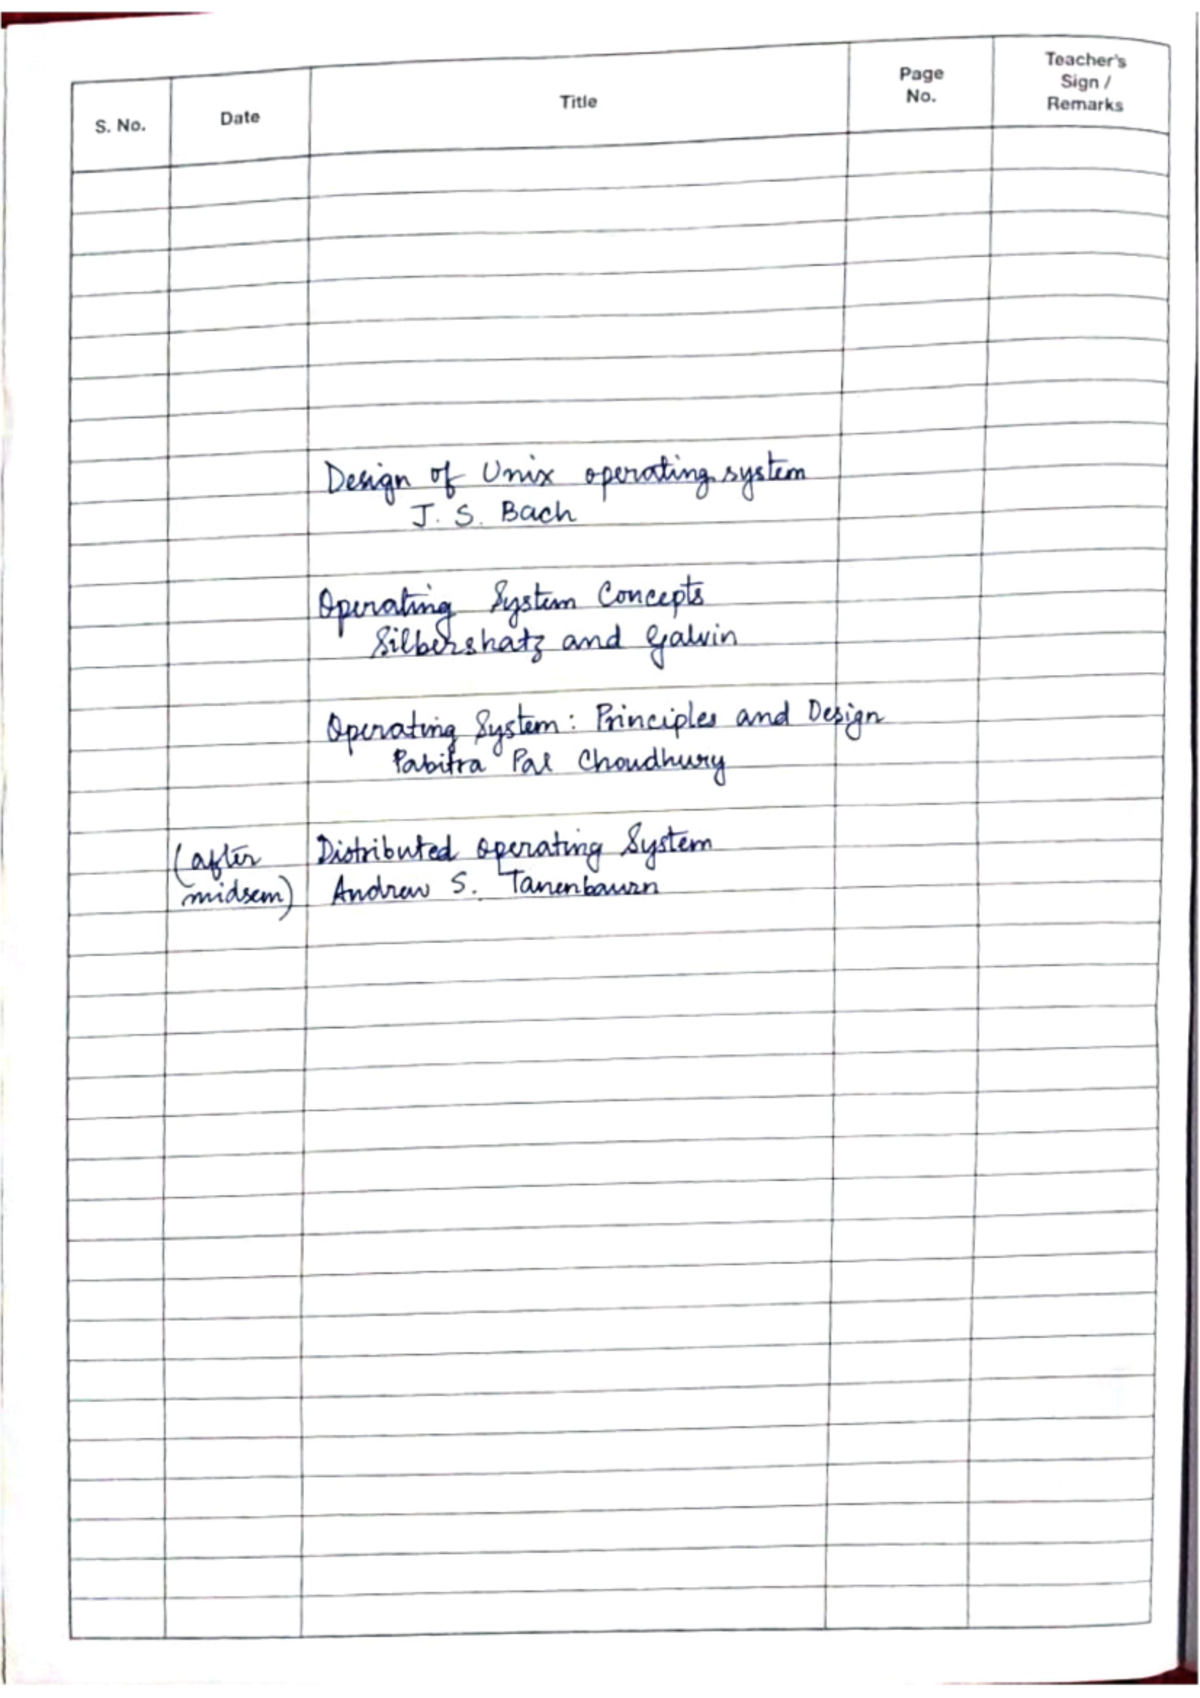 S. No.
Date
Title
Page
No.
Teacher's
Sign /
Remarks
Design of Unix operating system
J. S. Bach
Operating System Concepts
Silbershatz and Galvin
Operating System: Principles and Design
Pabitra Pal Choudhury
(after midsem)
Distributed Operating System
Andrew S. Tanenbaum